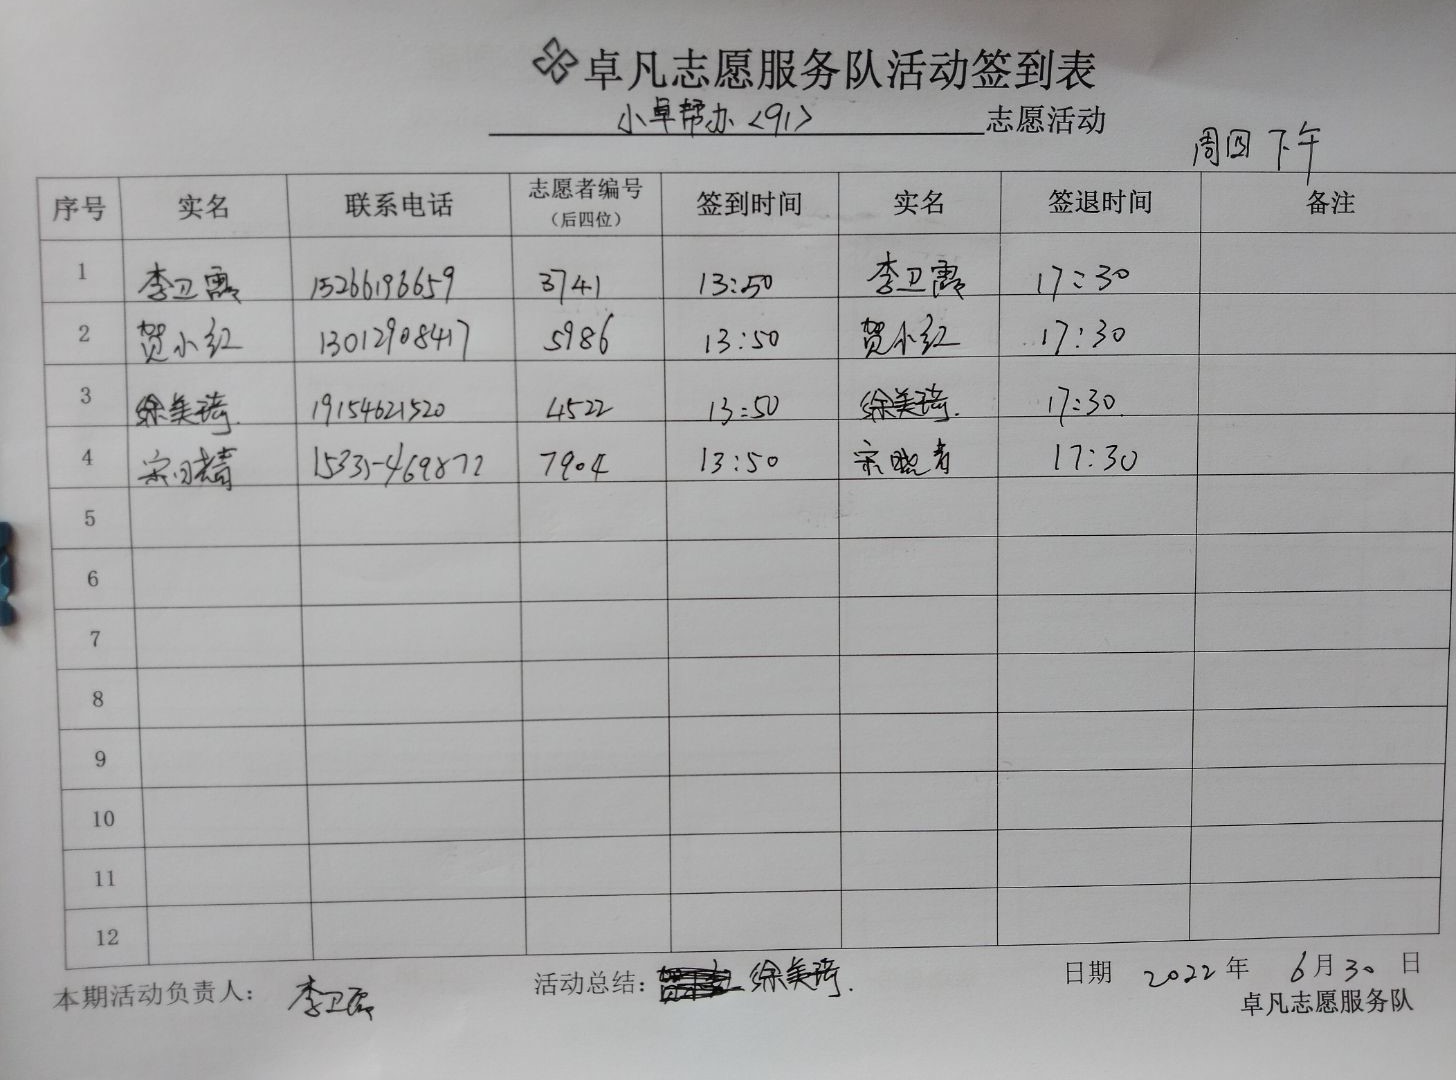 卓凡志愿服务队活动签到表
小卓帮办<91> 志愿活动
周四下午
序号 实名 联系电话 志愿者编号（后四位） 签到时间 实名 签退时间 备注
1 李卫霞 15266196659 3741 13:50 李卫霞 17:30
2 贺小红 13012908417 5986 13:50 贺小红 17:30
3 徐美琦. 19154621520 4522 13:50 徐美琦. 17:30.
4 15335469872 7904 13:50 17:30
5
6
7
8
9
10
11
12
本期活动负责人： 李卫霞 活动总结： 徐美琦. 日期 2022年 6月30日
卓凡志愿服务队